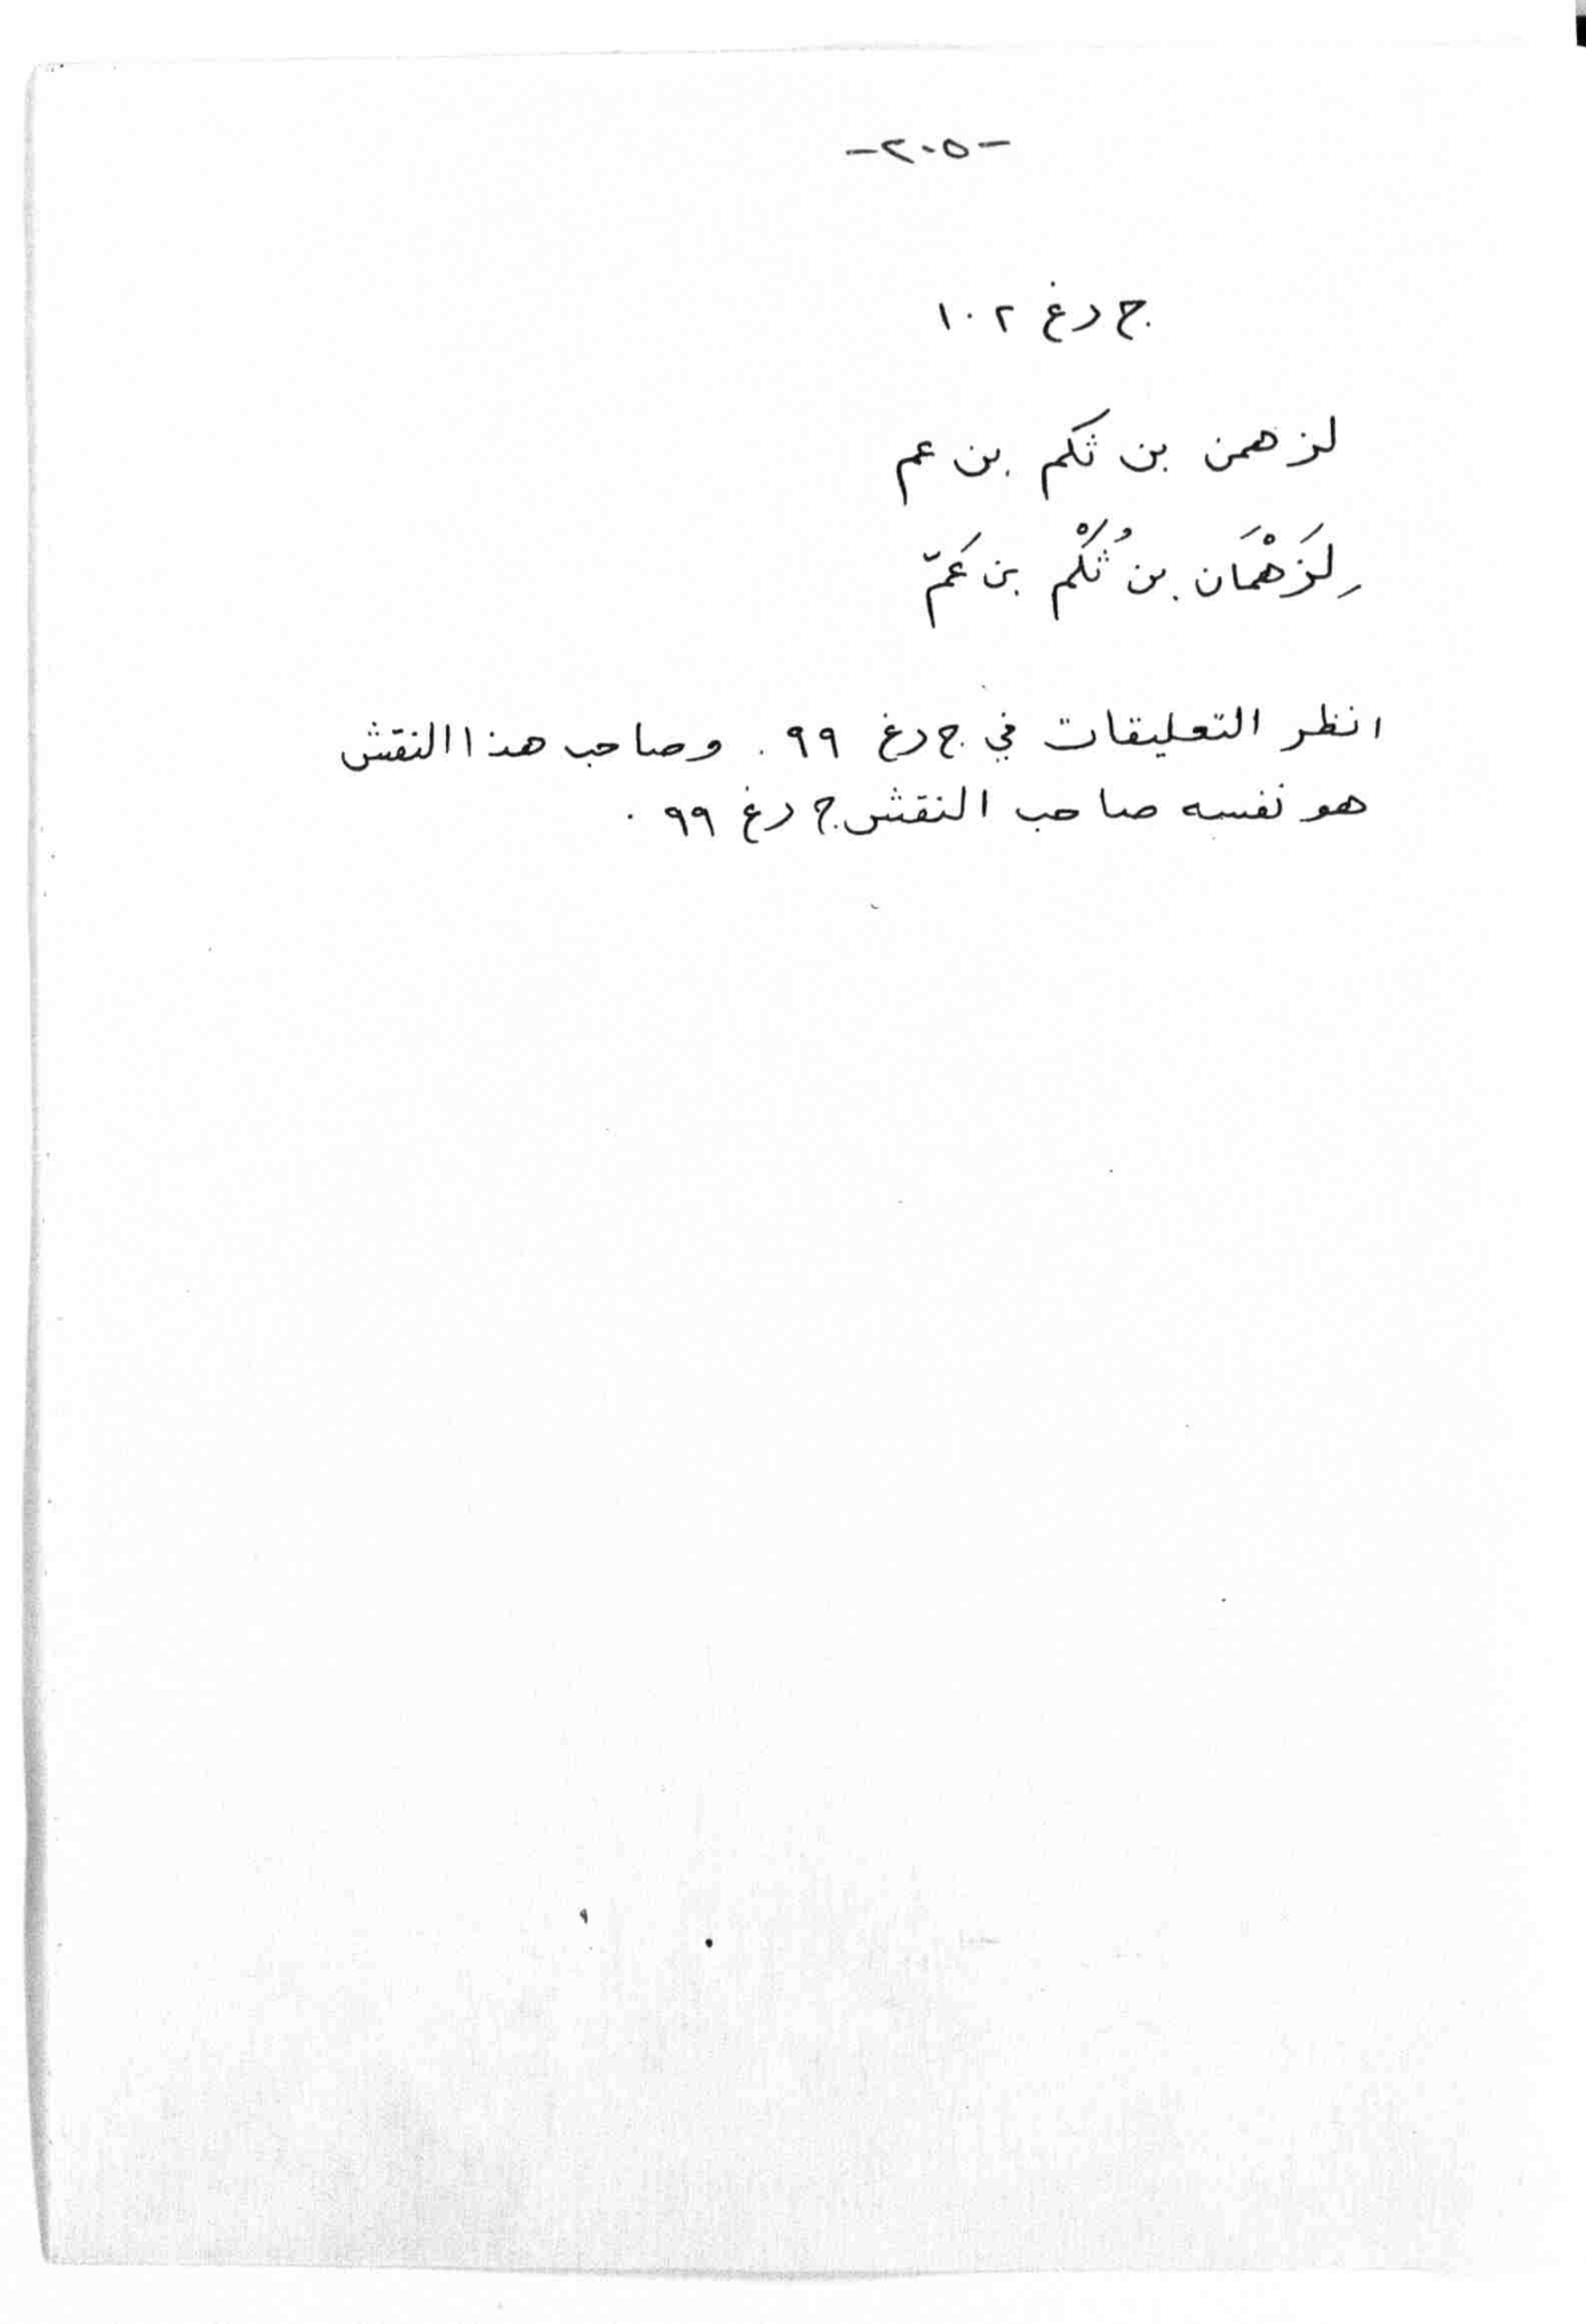 -٢٠٥-
ج دغ ١٠٢
لزهمن بن ثكم بن عم
لِزَهْمَان بن ثُكْم بن عَمّ
انظر التعليقات في ج دغ ٩٩. وصاحب هذا النقش
هو نفسه صاحب النقش ج دغ ٩٩.